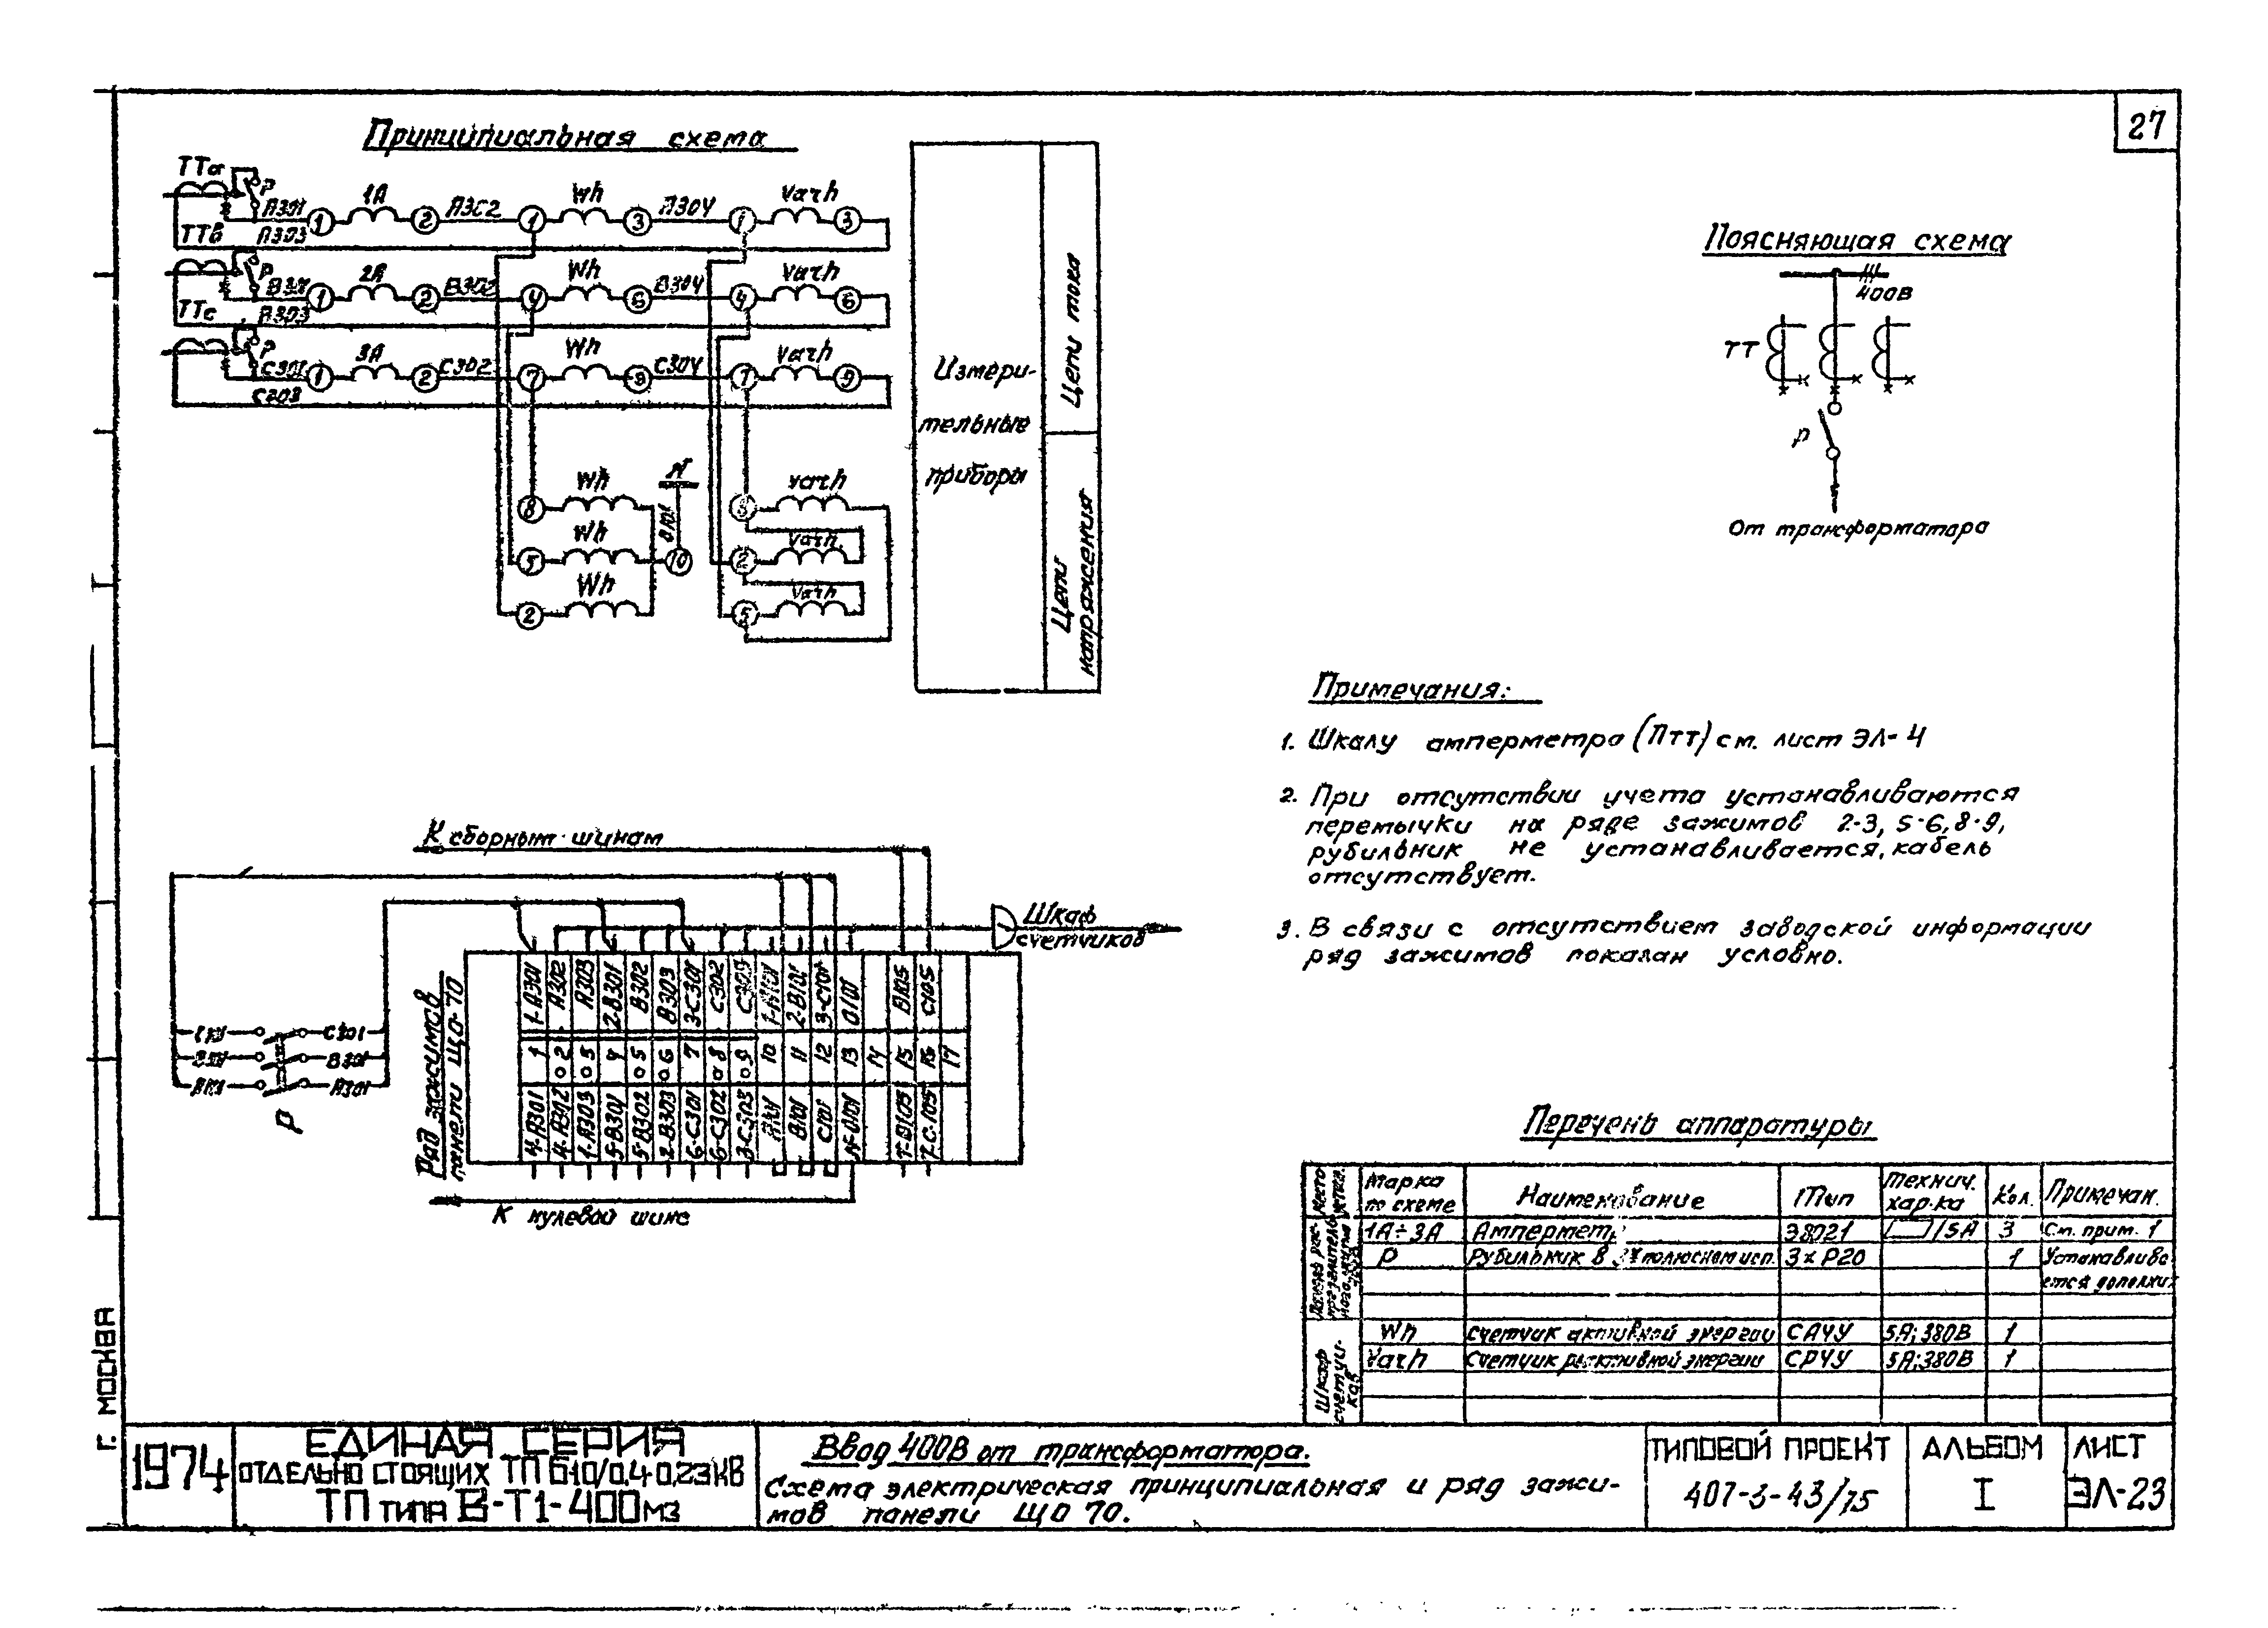 27
Принципиальная схема
ТТа
Р
А301
1
1А
2
А302
1
Wh
3
А304
1
Varh
3
ТТв
А303
Р
В301
1
2А
2
В302
4
Wh
6
В304
4
Varh
6
ТТс
А303
Р
С301
1
3А
2
С302
7
Wh
9
С304
7
Varh
9
С303
8
Wh
N
0101
Varh
5
Wh
10
2
Varh
2
Wh
5
Varh
Измери-
тельные
приборы
Цепи тока
Цепи
напряжения
Поясняющая схема
400В
ТТ
Р
От трансформатора
Примечания:
1. Шкалу амперметра (Птт) см. лист ЭЛ-4
2. При отсутствии учета устанавливаются
перемычки на ряде зажимов 2-3, 5-6, 8-9,
рубильник не устанавливается, кабель
отсутствует.
3. В связи с отсутствием заводской информации
ряд зажимов показан условно.
К сборным шинам
Шкаф
счетчиков
Ряд зажимов
панели ЩО-70
1-А301 А302 А303 2-В301 В302 В303 3-С301 С302 С303 1-А101 2-В101 3-С101 0101 В105 С105
1 2 3 4 5 6 7 8 9 10 11 12 13 14 15 16 17
4-А301 4-А302 1-А303 5-В301 5-В302 2-В303 6-С301 6-С302 3-С303 А101 В101 С101 N-0101 7-В105 7-С-105
С301
В301
А301
Р
К нулевой шине
Перечень аппаратуры
Место устан.
Марка по схеме
Наименование
Тип
Технич. хар-ка
Кол.
Примечан.
1А÷3А Амперметр Э8021 /5А 3 См. прим. 1
Р Рубильник в 3х полюсном исп. 3х Р20 1 Устанавлива-
ется дополнит
Wh Счетчик активной энергии СА4У 5А;380В 1
Varh Счетчик реактивной энергии СР4У 5А;380В 1
Шкаф счетчи-
ков
Г. МОСКВА
1974
ЕДИНАЯ СЕРИЯ
ОТДЕЛЬНО СТОЯЩИХ ТП 6-10/0,4-0,23КВ
ТП ТИПА В-Т1-400М3
Ввод 400В от трансформатора.
Схема электрическая принципиальная и ряд зажи-
мов панели ЩО 70.
ТИПОВОЙ ПРОЕКТ
407-3-43/75
АЛЬБОМ
I
ЛИСТ
ЭЛ-23